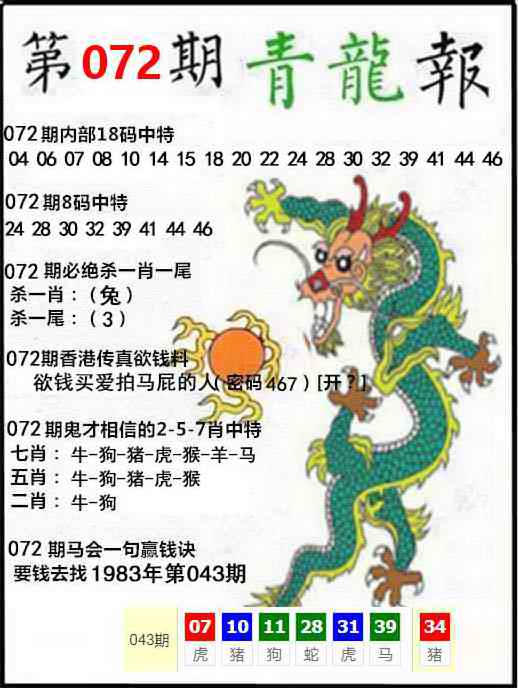 第072期青龍報
072期内部18码中特
04 06 07 08 10 14 15 18 20 22 24 28 30 32 39 41 44 46
072期8码中特
24 28 30 32 39 41 44 46
072 期必绝杀一肖一尾
杀一肖：（兔）
杀一尾：（3）
072期香港传真欲钱料
欲钱买爱拍马屁的人(密码467)[开？]
072期鬼才相信的2-5-7肖中特
七肖：牛-狗-猪-虎-猴-羊-马
五肖：牛-狗-猪-虎-猴
二肖：牛-狗
072 期马会一句赢钱诀
要钱去找1983年第043期
043期 07 10 11 28 31 39 34
虎 猪 狗 蛇 虎 马 猪